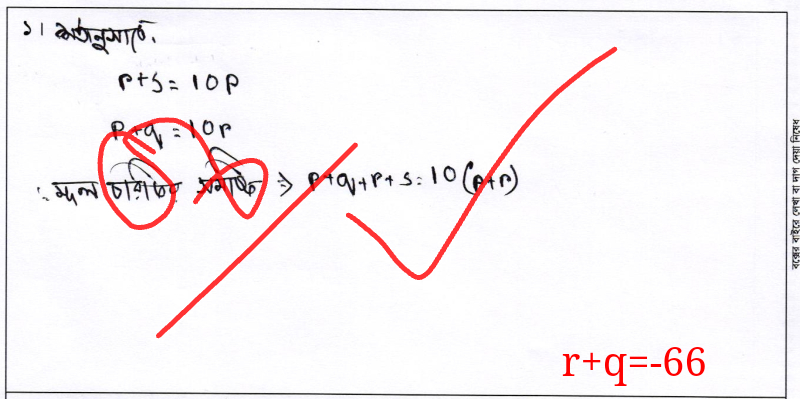 ১। শর্তানুসারে,
r+s = 10p
p+q = 10r
∴ মূল চারটির সমষ্টি ⇒ p+q+r+s = 10(p+r)
r+q=-66
বক্সের বাইরে লেখা বা দাগ দেয়া নিষেধ